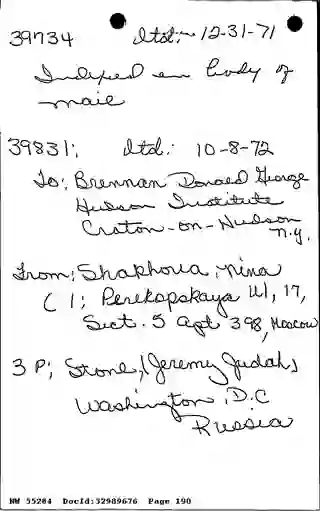 39734 dtd: 12-31-71
Indexed in body of
mail
39831; dtd: 10-8-72
To; Brennan Donald George
Hudson Institute
Croton-on-Hudson
N.Y.
From; Shakhova, Nina
( 1; Perekopskaya Ul, 17,
Sect. 5 Apt 398, Moscow
3 P; Stone, (Jeremy Judah)
Washington, D.C
Russia
NW 55284 DocId:32989676 Page 190